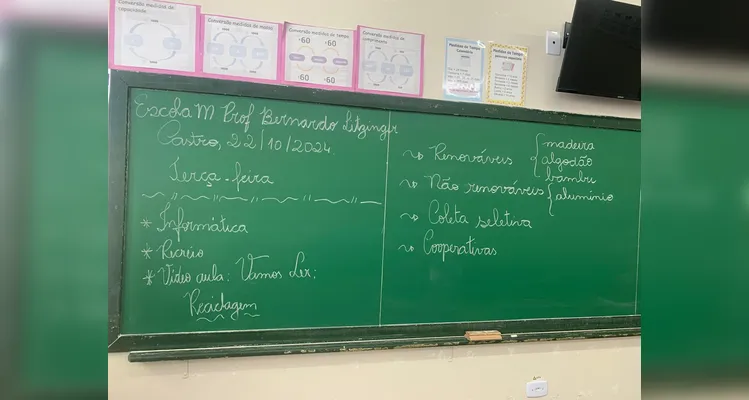 Conversão medidas de capacidade
Conversão medidas de massa
Conversão medidas de Tempo
Conversão medidas de comprimento
÷60 ÷60
×60 ×60
Medidas de Tempo
Medidas de Tempo
Escola M Prof Bernardo Litzinger
Castro, 22/10/2024
Terça-feira
* Informática
* Recreio
* Vídeo aula: Vamos Ler:
Reciclagem
Renováveis { madeira
algodão
bambu
Não renováveis { alumínio
Coleta seletiva
Cooperativas